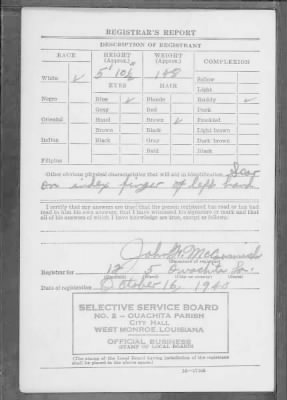 REGISTRAR'S REPORT
DESCRIPTION OF REGISTRANT
RACE HEIGHT (Approx.) WEIGHT (Approx.) COMPLEXION
White ✓ 5' 10½" 148 Sallow
EYES HAIR Light
Negro Blue ✓ Blonde Ruddy ✓
Gray Red Dark
Oriental Hazel Brown ✓ Freckled
Brown Black Light brown
Indian Black Gray Dark brown
Bald Black
Filipino
Other obvious physical characteristics that will aid in identification Scar
on index finger of left hand
I certify that my answers are true; that the person registered has read or has had
read to him his own answers; that I have witnessed his signature or mark and that
all of his answers of which I have knowledge are true, except as follows:
John
(Signature of registrar)
Registrar for 12 5 Ouachita La.
(Precinct) (Ward) (City or county) (State)
Date of registration October 16, 1940
SELECTIVE SERVICE BOARD
NO. 2 - OUACHITA PARISH
CITY HALL
WEST MONROE, LOUISIANA
OFFICIAL BUSINESS
STAMP OF LOCAL BOARD
(The stamp of the Local Board having jurisdiction of the registrant
shall be placed in the above space.)